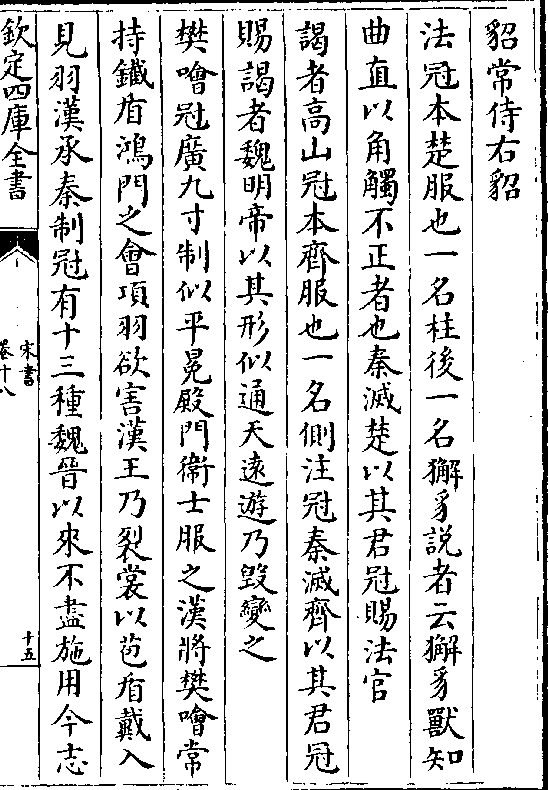 貂常侍右貂
法冠本楚服也一名柱後一名獬豸說者云獬豸獸知
曲直以角觸不正者也秦滅楚以其君冠賜法官
謁者高山冠本齊服也一名側注冠秦滅齊以其君冠
賜謁者魏明帝以其形似通天遠遊乃毀變之
樊噲冠廣九寸制似平冕殿門衛士服之漢將樊噲常
持鐵盾鴻門之會項羽欲害漢王乃裂裳以苞盾戴入
見羽漢承秦制冠有十三種魏晉以來不盡施用今志
欽定四庫全書
宋書
卷十八
十五